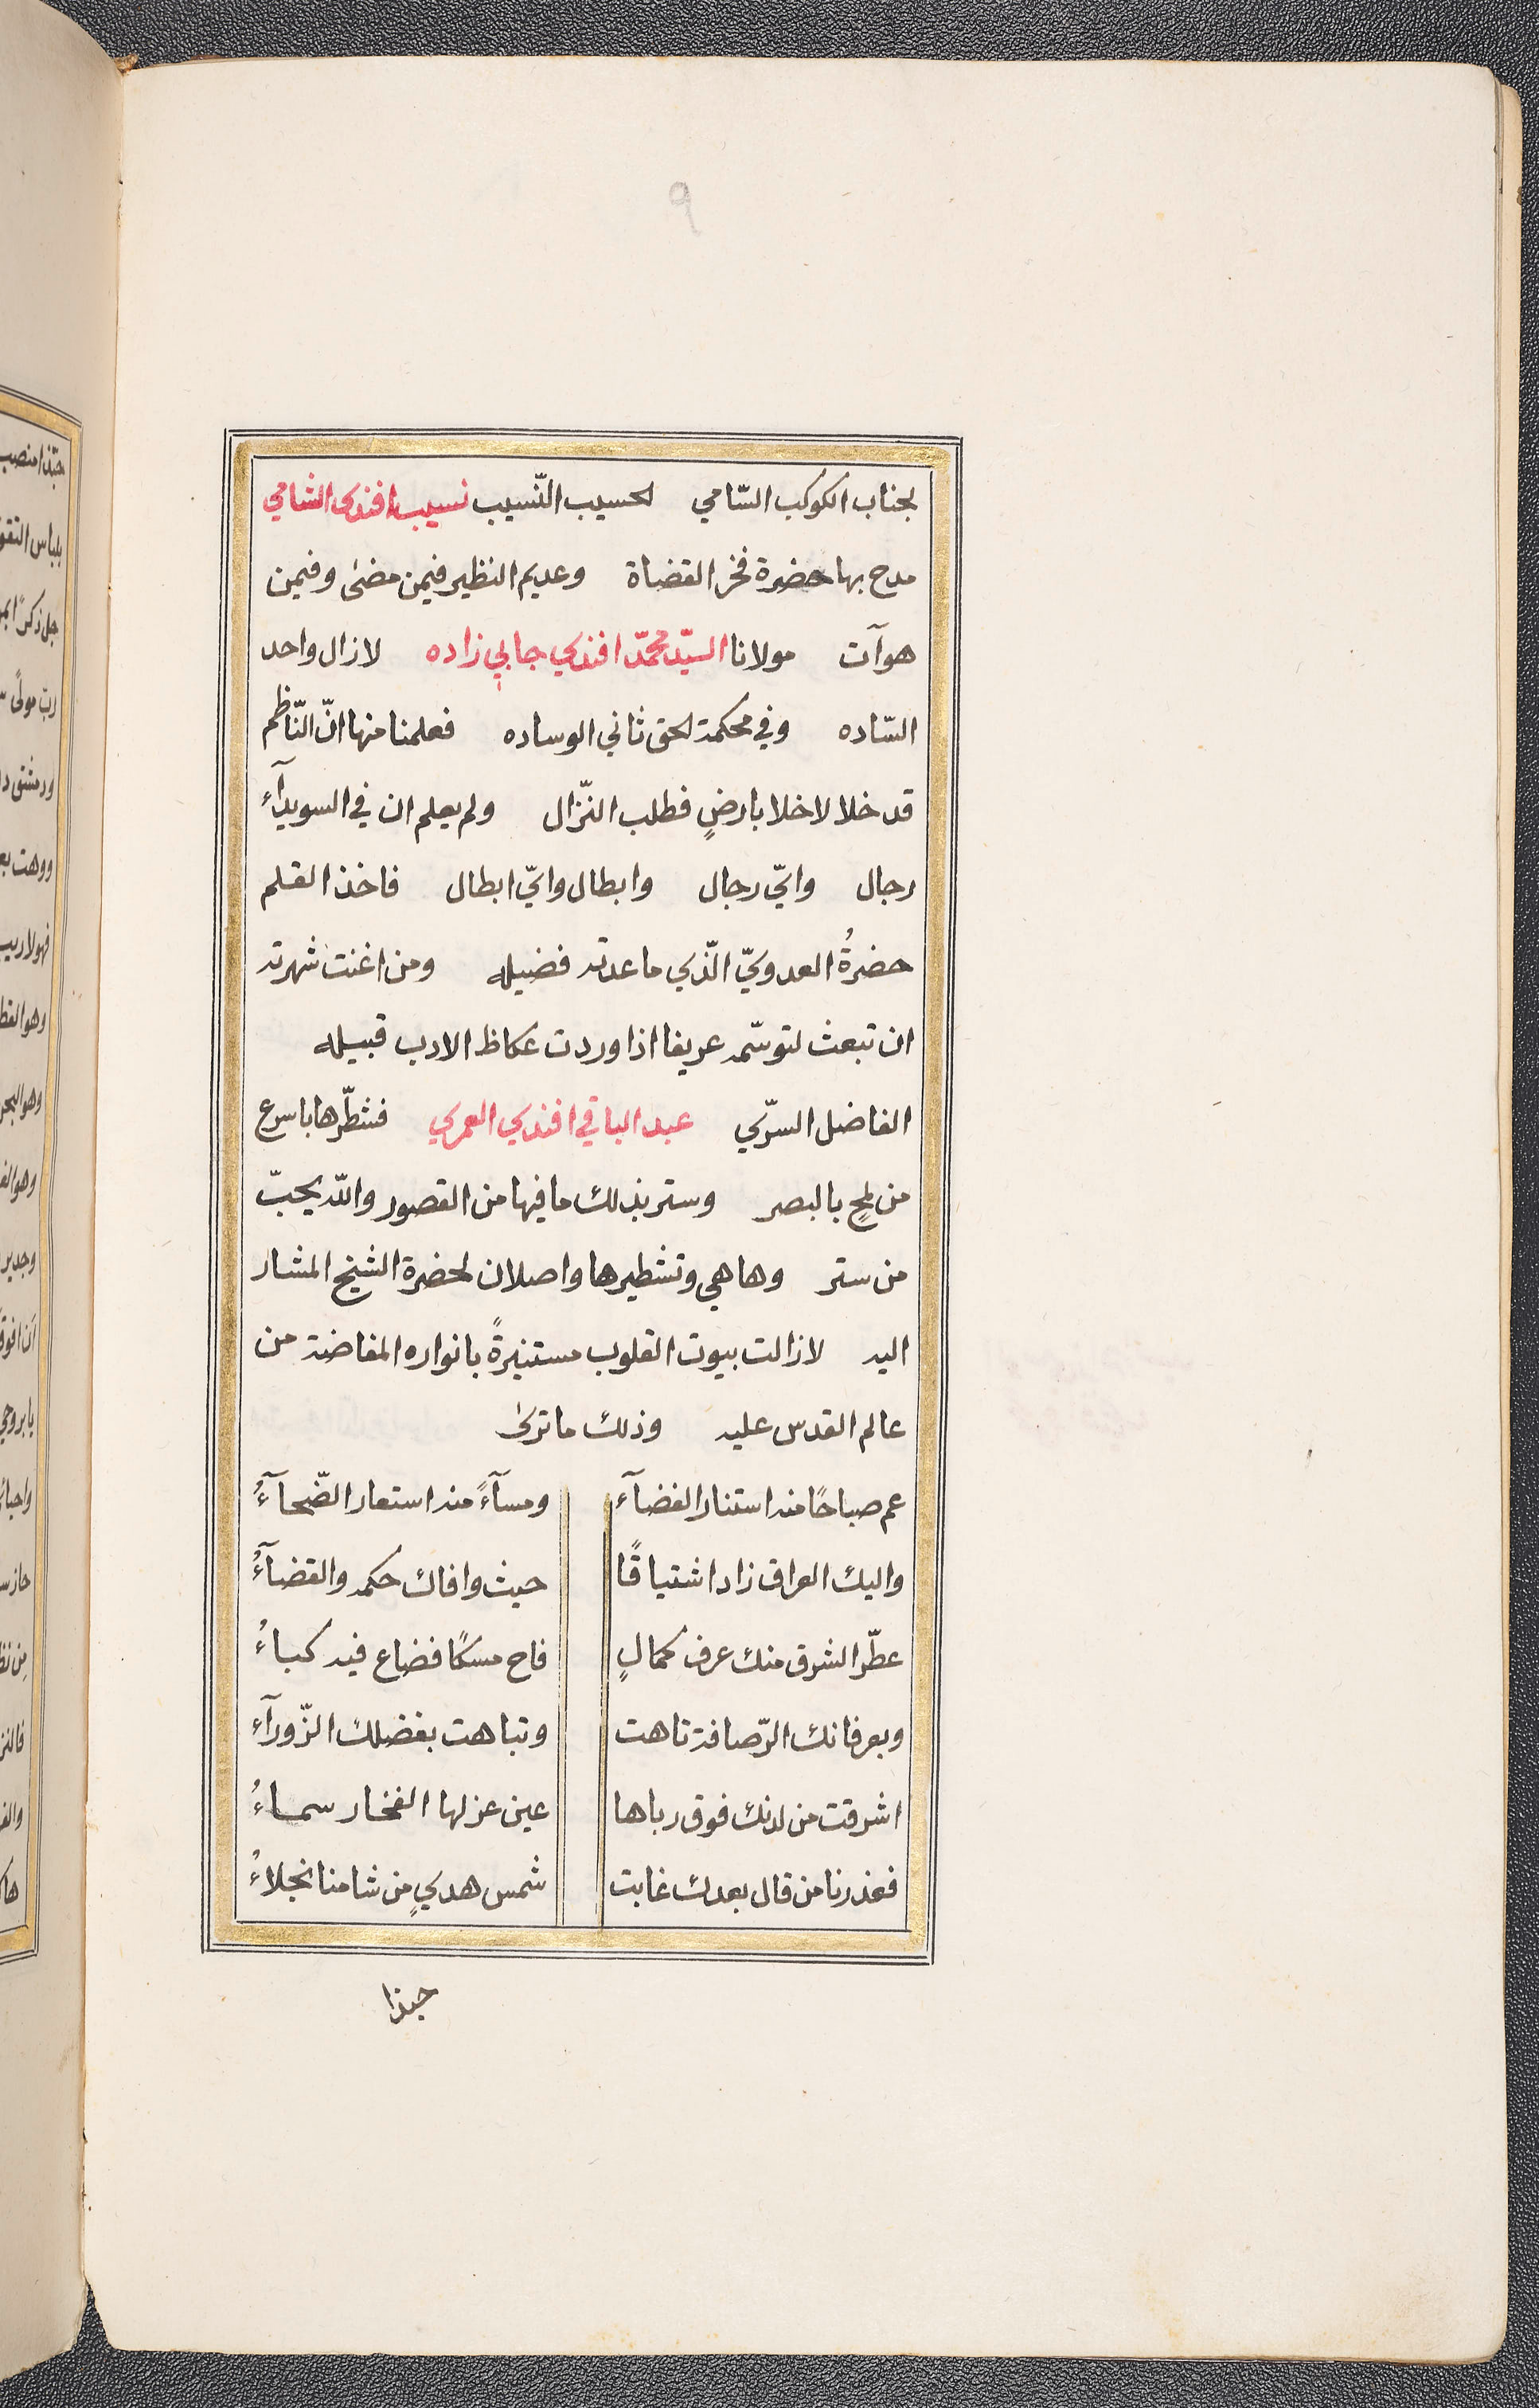 ٩
لجناب الكوكب السّامي لحسيب النّسيب نسيب افندى الشامي
مدح بها حضرة فخر القضاة وعديم النظير فيمن مضىٰ وفيمن
هوآت مولانا السيّد محمّد افندي جابي زاده لازال واحد
السّاده وفي محكمة لحق ثاني الوساده فعلمنا منها انّ النّاظم
قد خلا لاخلا بارضٍ فطلب النّزال ولم يعلم ان في السويدآء
رجال وايّ رجال وابطال وايّ ابطال فاخذ القلم
حضرةُ العدويّ الّذي ما عدته فضيله ومن اغنت شهرته
ان تبعث لتوسّمه عريفا اذا وردت عكاظ الادب قبيله
الفاضل السرّي عبد الباقي افندي العمري فشطّرها باسرع
من لمحٍ بالبصر وستر بذلك ما فيها من القصور والله يحبّ
من ستر وها هي وتشطيرها واصلان لحضرة الشيخ المشار
اليه لازالت بيوت القلوب مستنيرةً بانواره المفاضة من
عالم القدس عليه وذلك ما ترىٰ
عم صباحًا منه استنار الفضآء ومسآءً منه استعار الضّحآءُ
واليك العراق زاد اشتياقًا حيث وافاك حكمه والقضآءُ
عطّر الشرق منك عرف كمالٍ فاح مسكًا فضاع فيه كباءُ
وبعرفانك الرّصافة تاهت وتباهت بفضلك الزّورآء
اشرقت من لدنك فوق رباها عين عز لها الفخار سماءُ
فعذرنا من قال بعدك غابت شمس هديٍ من شامنا نجلاءُ
حبذا